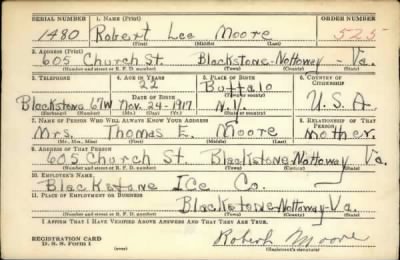 SERIAL NUMBER 1. NAME (Print) ORDER NUMBER
1480 Robert Lee Moore 525
(First) (Middle) (Last)
2. ADDRESS (Print)
605 Church St. Blackstone-Nottoway-Va.
(Number and street or R. F. D. number) (Town) (County) (State)
3. TELEPHONE 4. AGE IN YEARS 5. PLACE OF BIRTH 6. COUNTRY OF CITIZENSHIP
22 Buffalo
(Town or county)
Blackstone 67W Nov. 24-1917 N.Y. U.S.A.
(Exchange) (Number) (Mo.) (Day) (Yr.) (State or country)
7. NAME OF PERSON WHO WILL ALWAYS KNOW YOUR ADDRESS 8. RELATIONSHIP OF THAT PERSON
Mrs. Thomas E. Moore Mother.
(Mr., Mrs., Miss) (First) (Middle) (Last)
9. ADDRESS OF THAT PERSON
605 Church St. Blackstone-Nottoway Va.
(Number and street or R. F. D. number) (Town) (County) (State)
10. EMPLOYER'S NAME
Blackstone Ice Co.
11. PLACE OF EMPLOYMENT OR BUSINESS
Blackstone-Nottoway-Va.
(Number and street or R. F. D. number) (Town) (County) (State)
I AFFIRM THAT I HAVE VERIFIED ABOVE ANSWERS AND THAT THEY ARE TRUE.
REGISTRATION CARD
D. S. S. Form 1
Robert Moore
(Registrant's signature)